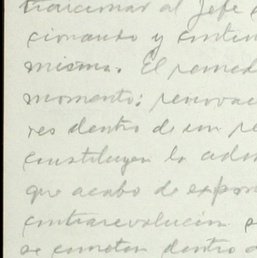 traicionar al Jefe
cionando y
misma. El remed
momento: renovac
res dentro de un pe
constituyen la
que acabo de expon
contrarevolución s
se cometan dentro d